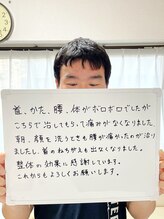 首、かた、腰、体がボロボロでしたが
こちらで治してもらって痛みがなくなりました
朝、顔を洗うときも腰が痛かったのが治り
ましたし、首のねちがえも出なくなりました。
整体の効果に感謝しています。
これからもよろしくお願いします。